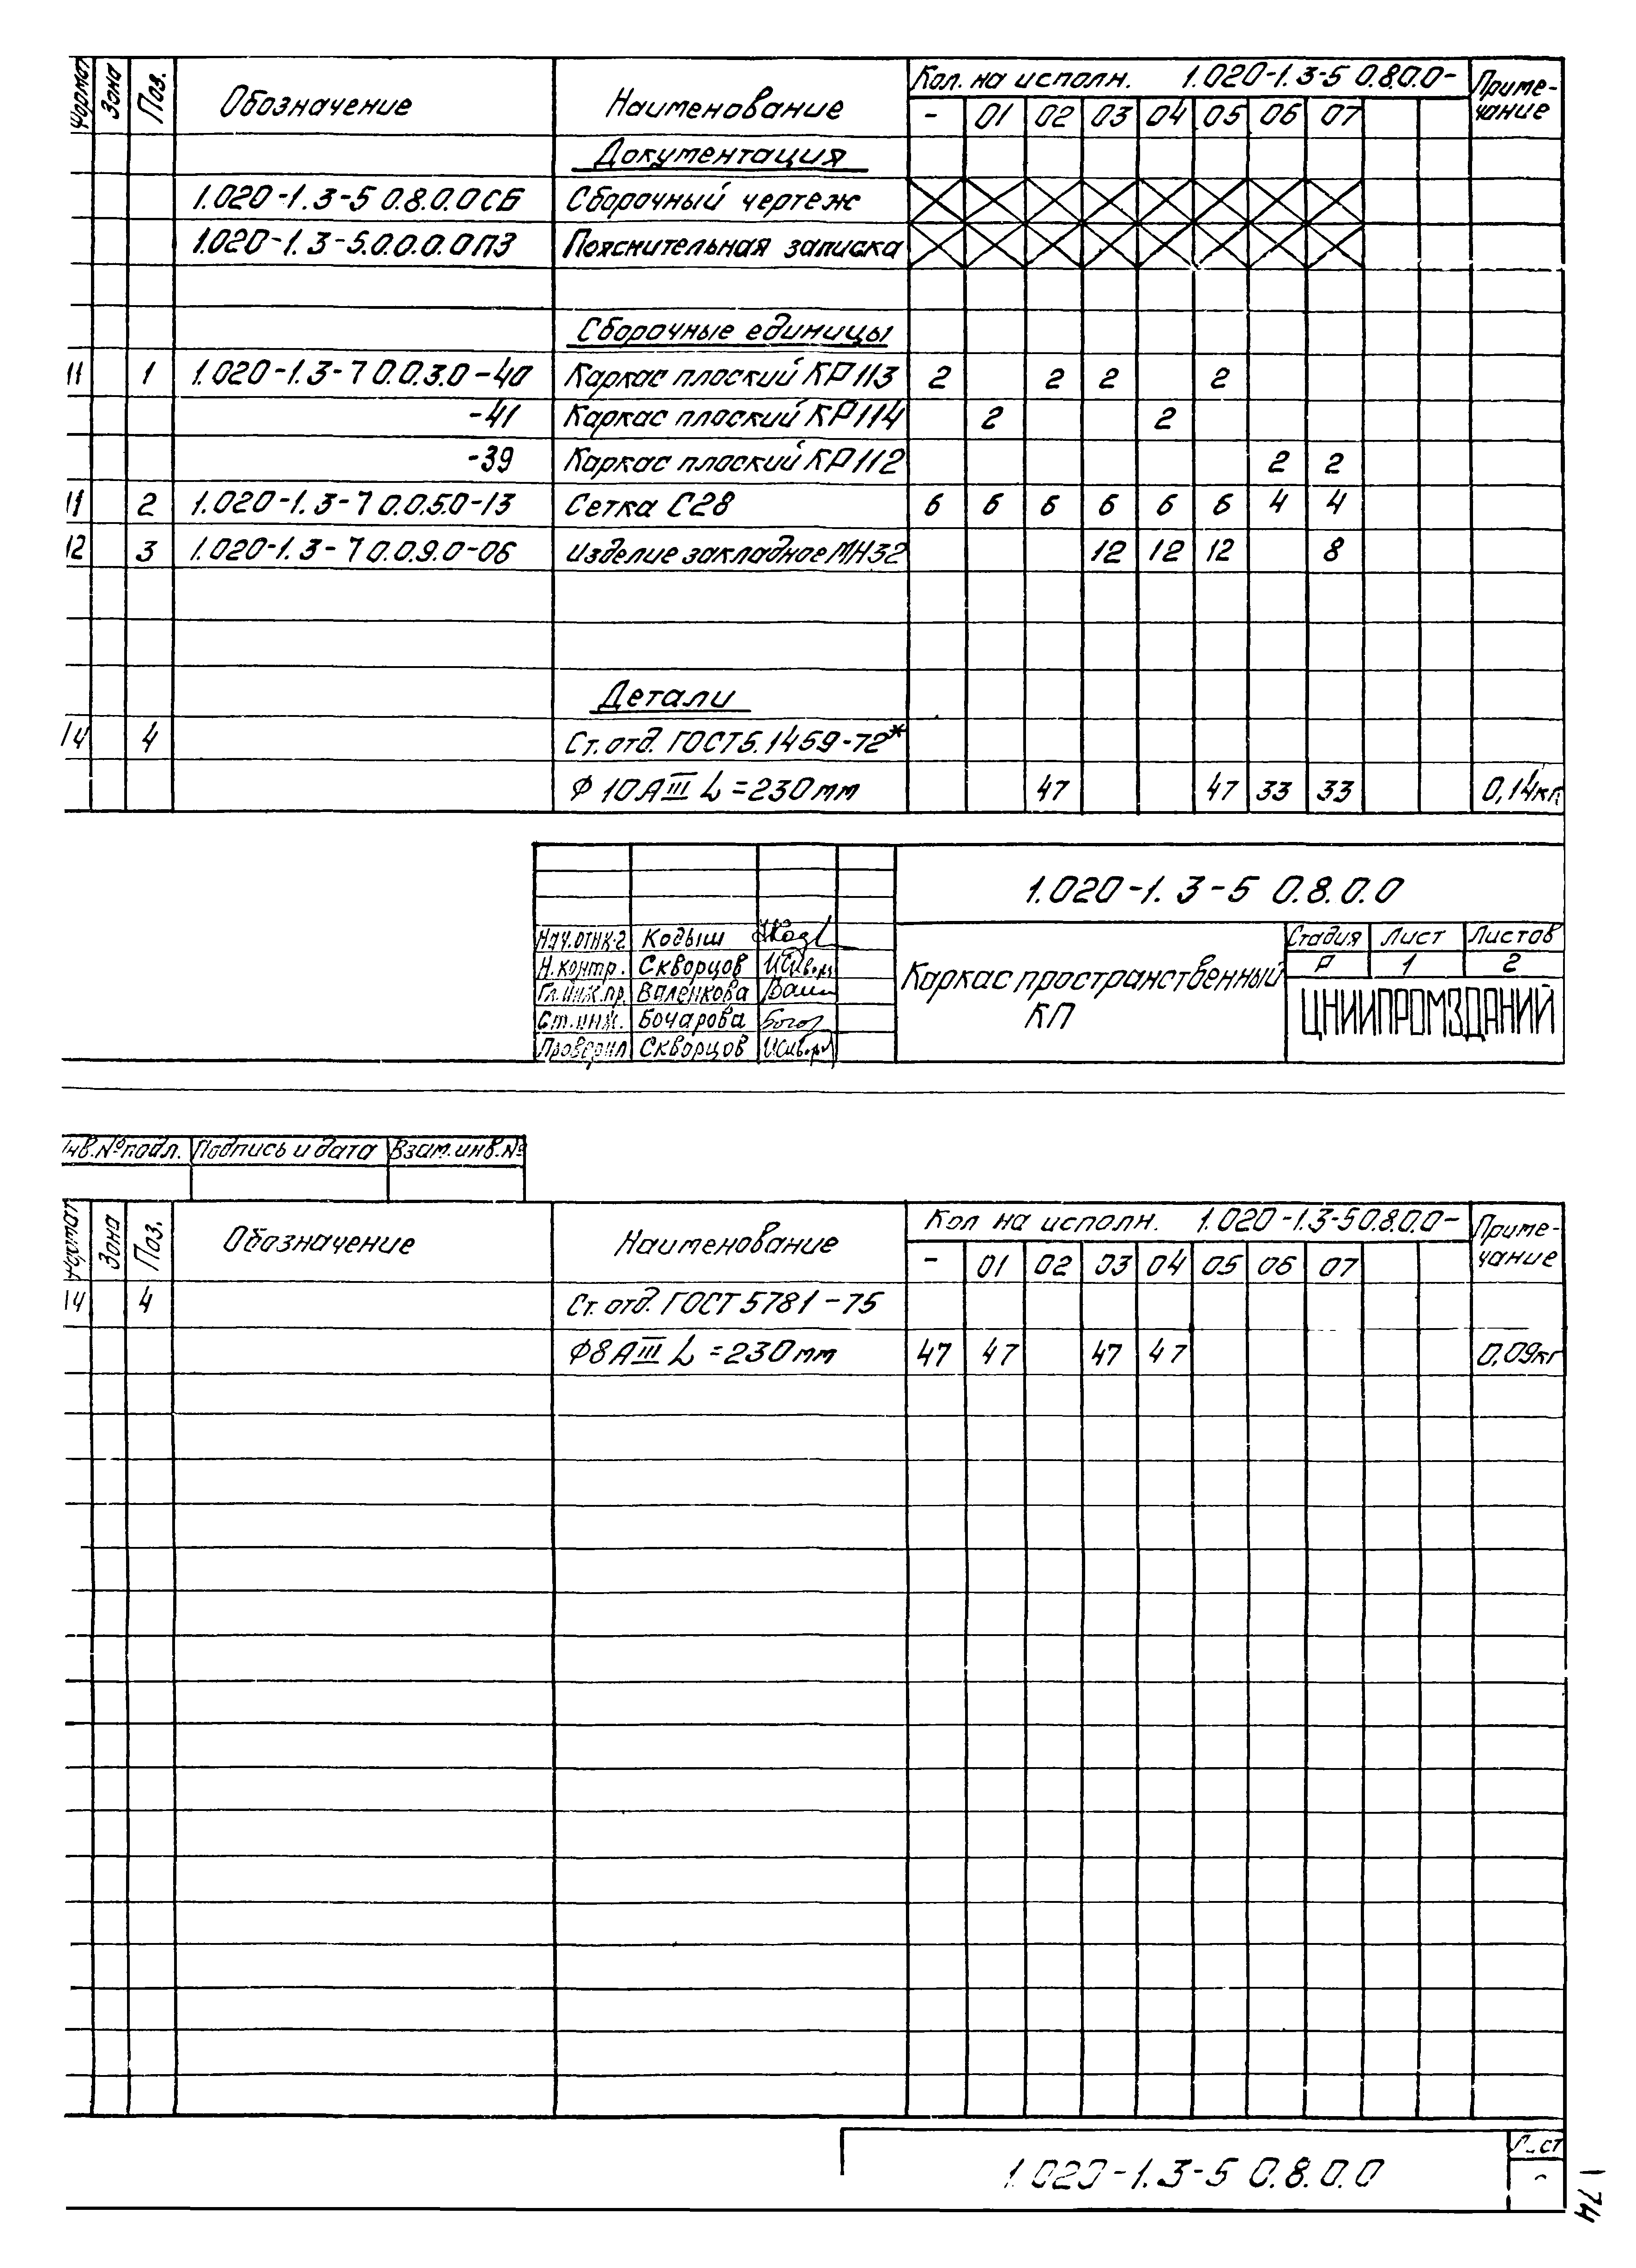 Формат Зона Поз. Обозначение Наименование Кол. на исполн. 1.020-1.3-5 0.8.0.0- Приме-
- 01 02 03 04 05 06 07 чание
Документация
1.020-1.3-5 0.8.0.0СБ Сборочный чертеж
1.020-1.3-5.0.0.0.0ПЗ Пояснительная записка
Сборочные единицы
11 1 1.020-1.3-7 0.0.3.0-40 Каркас плоский КР113 2 2 2 2
-41 Каркас плоский КР114 2 2
-39 Каркас плоский КР112 2 2
11 2 1.020-1.3-7 0.0.5.0-13 Сетка С28 6 6 6 6 6 6 4 4
12 3 1.020-1.3-7 0.0.9.0-06 Изделие закладное МН32 12 12 12 8
Детали
14 4 Ст. отд. ГОСТ 5.1459-72*
Ф 10АIII L=230мм 47 47 33 33 0,14кг
1.020-1.3-5 0.8.0.0
Нач.отк-2 Кодыш
Н.контр. Скворцов
Гл.инж.пр. Валенкова
Ст.инж. Бочарова
Проверил Скворцов
Каркас пространственный
КП
Стадия Лист Листов
Р 1 2
ЦНИИПРОМЗДАНИЙ
Инв.№ подл. Подпись и дата Взам.инв.№
Формат Зона Поз. Обозначение Наименование Кол на исполн. 1.020-1.3-5 0.8.0.0- Приме-
- 01 02 03 04 05 06 07 чание
14 4 Ст. отд. ГОСТ 5781-75
Ф8АIII L=230мм 47 47 47 47 0,09кг
1.020-1.3-5 0.8.0.0
Лист
74